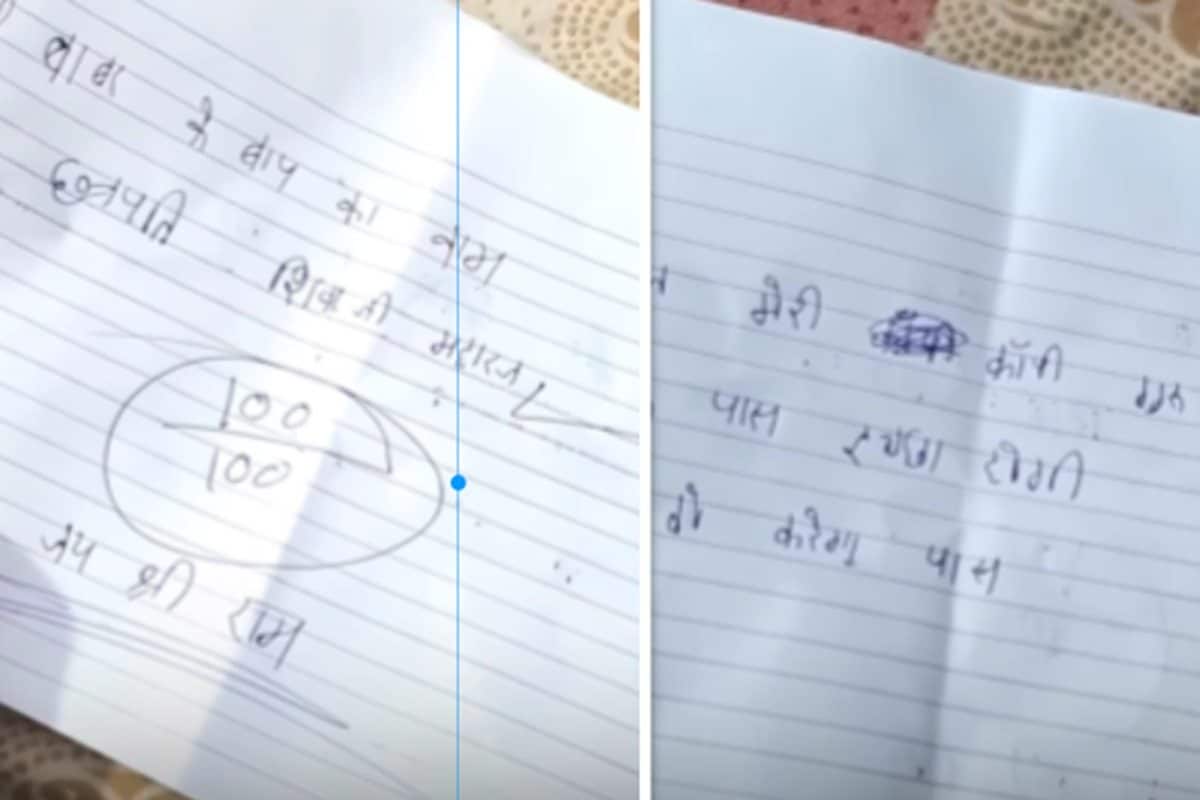 बाबर के बाप का नाम
छत्रपति शिवाजी महाराज
100
100
जय श्री राम
मेरी कॉपी
पास इच्छा होगी
वो करेगा पास